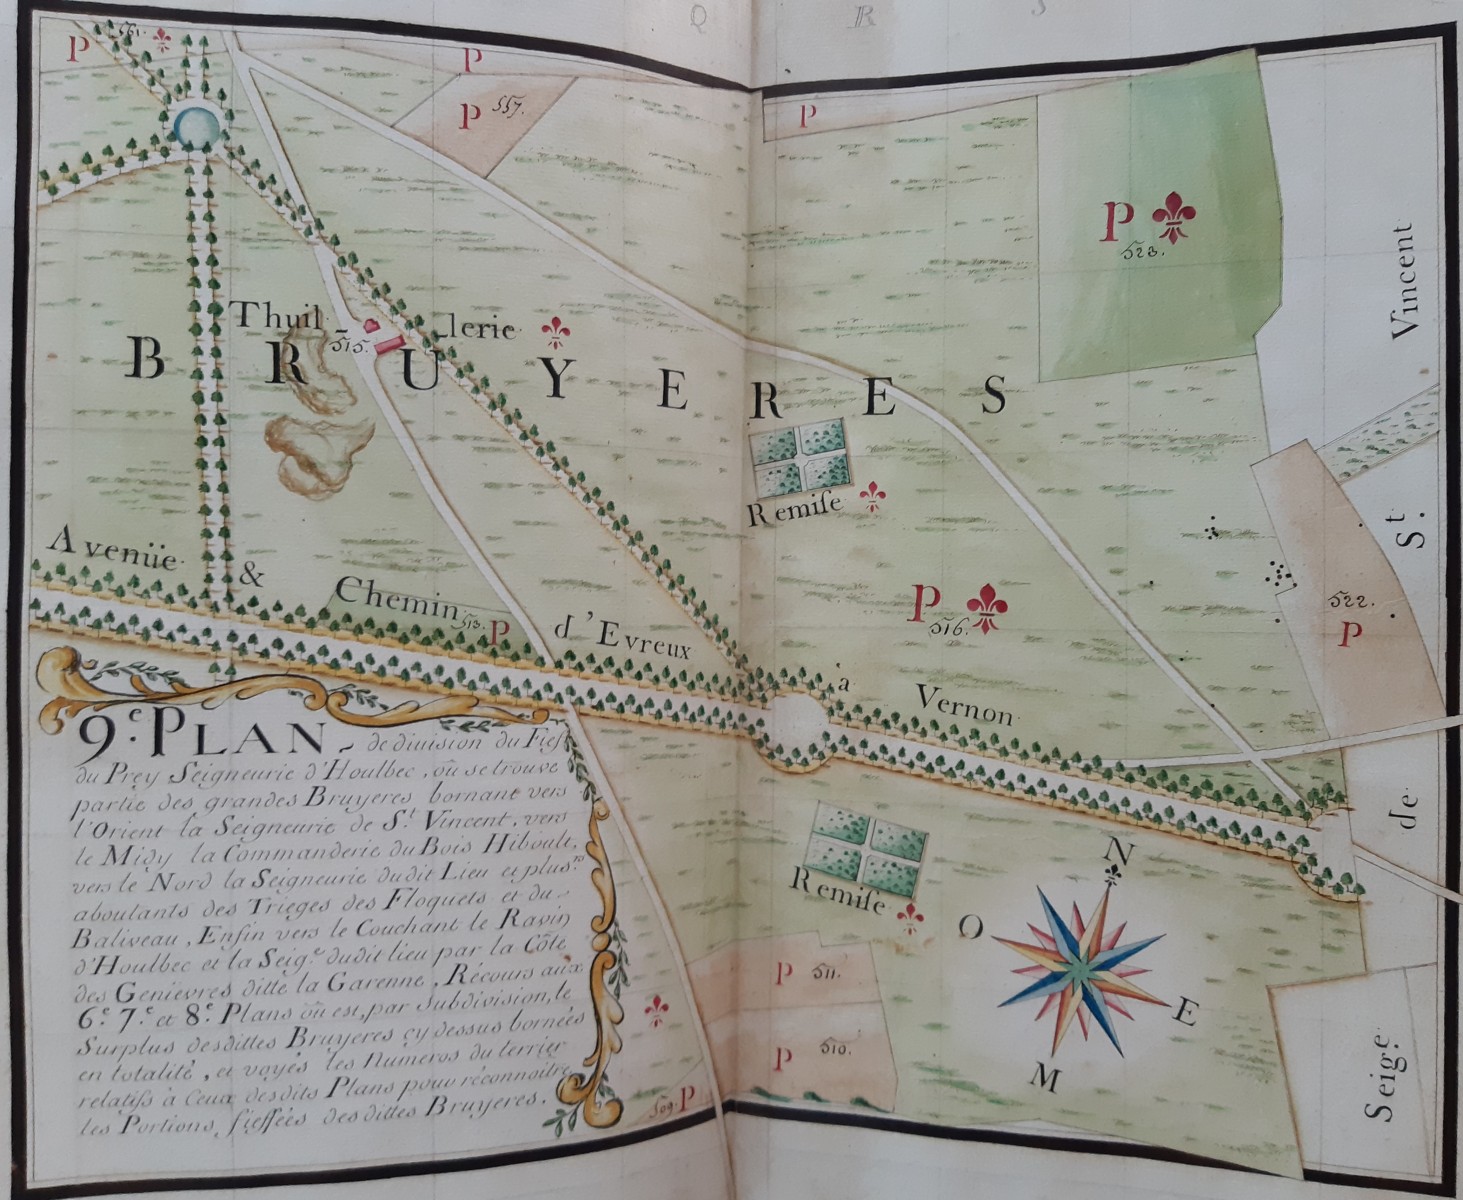 Q R S
P 561.
P
P 557.
P
P
523.
Vincent
Thuil lerie
515.
BRUYERES
Remiſe
St.
Avenüe & Chemin d'Evreux à Vernon
513. P
P
516.
522.
P
9.e PLAN de division du Fief
du Prey Seigneurie d'Houlbec, où se trouve
partie des grandes Bruyeres bornant vers
l'Orient la Seigneurie de S.t Vincent, vers
le Midy la Commanderie du Bois Hiboult,
vers le Nord la Seigneurie dudit Lieu et plus.rs
aboutants des Trieges des Floquets et du
Baliveau, Enfin vers le Couchant le Ravin
d'Houlbec et la Seig.e dudit lieu par la Côte
des Genievres ditte la Garenne, Récours aux
6.e 7.e et 8.e Plans où est, par Subdivision, le
Surplus desdittes Bruyeres cy dessus bornées
en totalité, et voyés les Numeros du terrier
relatifs à Ceux desdits Plans pour réconnoitre
les Portions, fieffées desdittes Bruyeres.
Remiſe
de
N
O
E
M
P 511.
P 510.
509. P
Seig.e